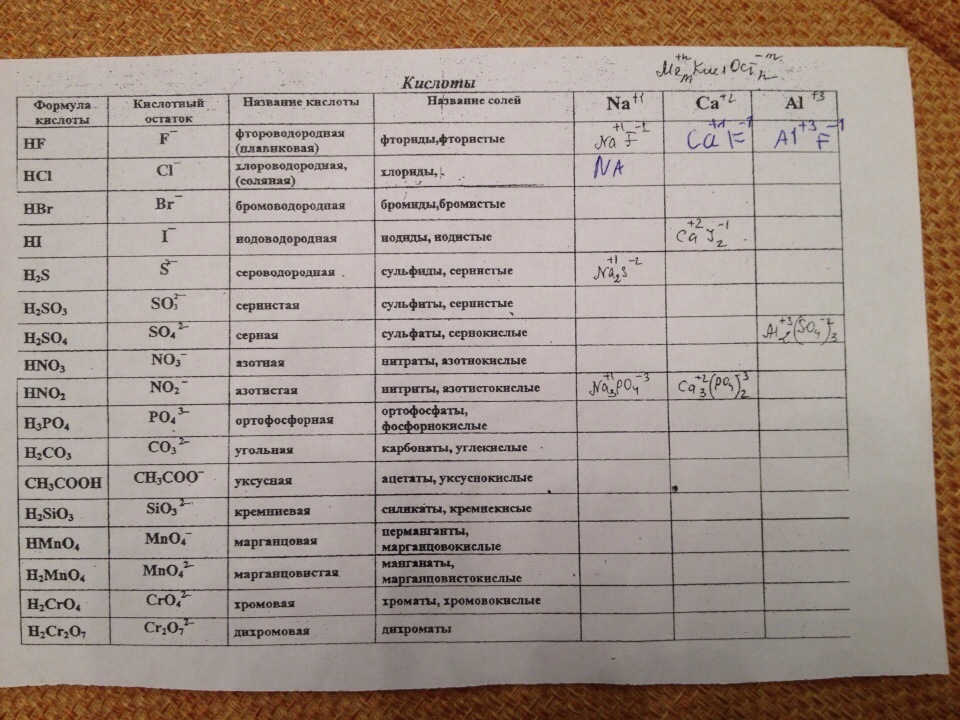 Me+n m КислОст−m n
Кислоты
Формула кислоты | Кислотный остаток | Название кислоты | Название солей | Na+1 | Ca+2 | Al+3
HF | F⁻ | фтороводородная (плавиковая) | фториды,фтористые | Na+1 F−1 | Ca+1 F−1 | Al+3 F−1
HCl | Cl⁻ | хлороводородная, (соляная) | хлориды, | NA
HBr | Br⁻ | бромоводородная | бромиды,бромистые
HI | I⁻ | иодоводородная | иодиды, иодистые | Ca+2 J₂−1
H₂S | S²⁻ | сероводородная . | сульфиды, сернистые | Na₂+1 S−2
H₂SO₃ | SO₃²⁻ | сернистая | сульфиты, сернистые
H₂SO₄ | SO₄²⁻ | серная | сульфаты, сернокислые | Al₂+3(SO₄−2)₃
HNO₃ | NO₃⁻ | азотная | нитраты, азотнокислые
HNO₂ | NO₂⁻ | азотистая | нитриты, азотистокислые | Na₃+1PO₄−3 | Ca₃+2(PO₄)₂−3
H₃PO₄ | PO₄³⁻ | ортофосфорная | ортофосфаты, фосфорнокислые
H₂CO₃ | CO₃²⁻ | угольная | карбонаты, углекислые
CH₃COOH | CH₃COO⁻ | уксусная | ацетаты, уксуснокислые
H₂SiO₃ | SiO₃²⁻ | кремниевая | силикаты, кремнекисые
HMnO₄ | MnO₄⁻ | марганцовая | перманганты, марганцовокислые
H₂MnO₄ | MnO₄²⁻ | марганцовистая | манганаты, марганцовистокислые
H₂CrO₄ | CrO₄²⁻ | хромовая | хроматы, хромовокислые
H₂Cr₂O₇ | Cr₂O₇²⁻ | дихромовая | дихроматы